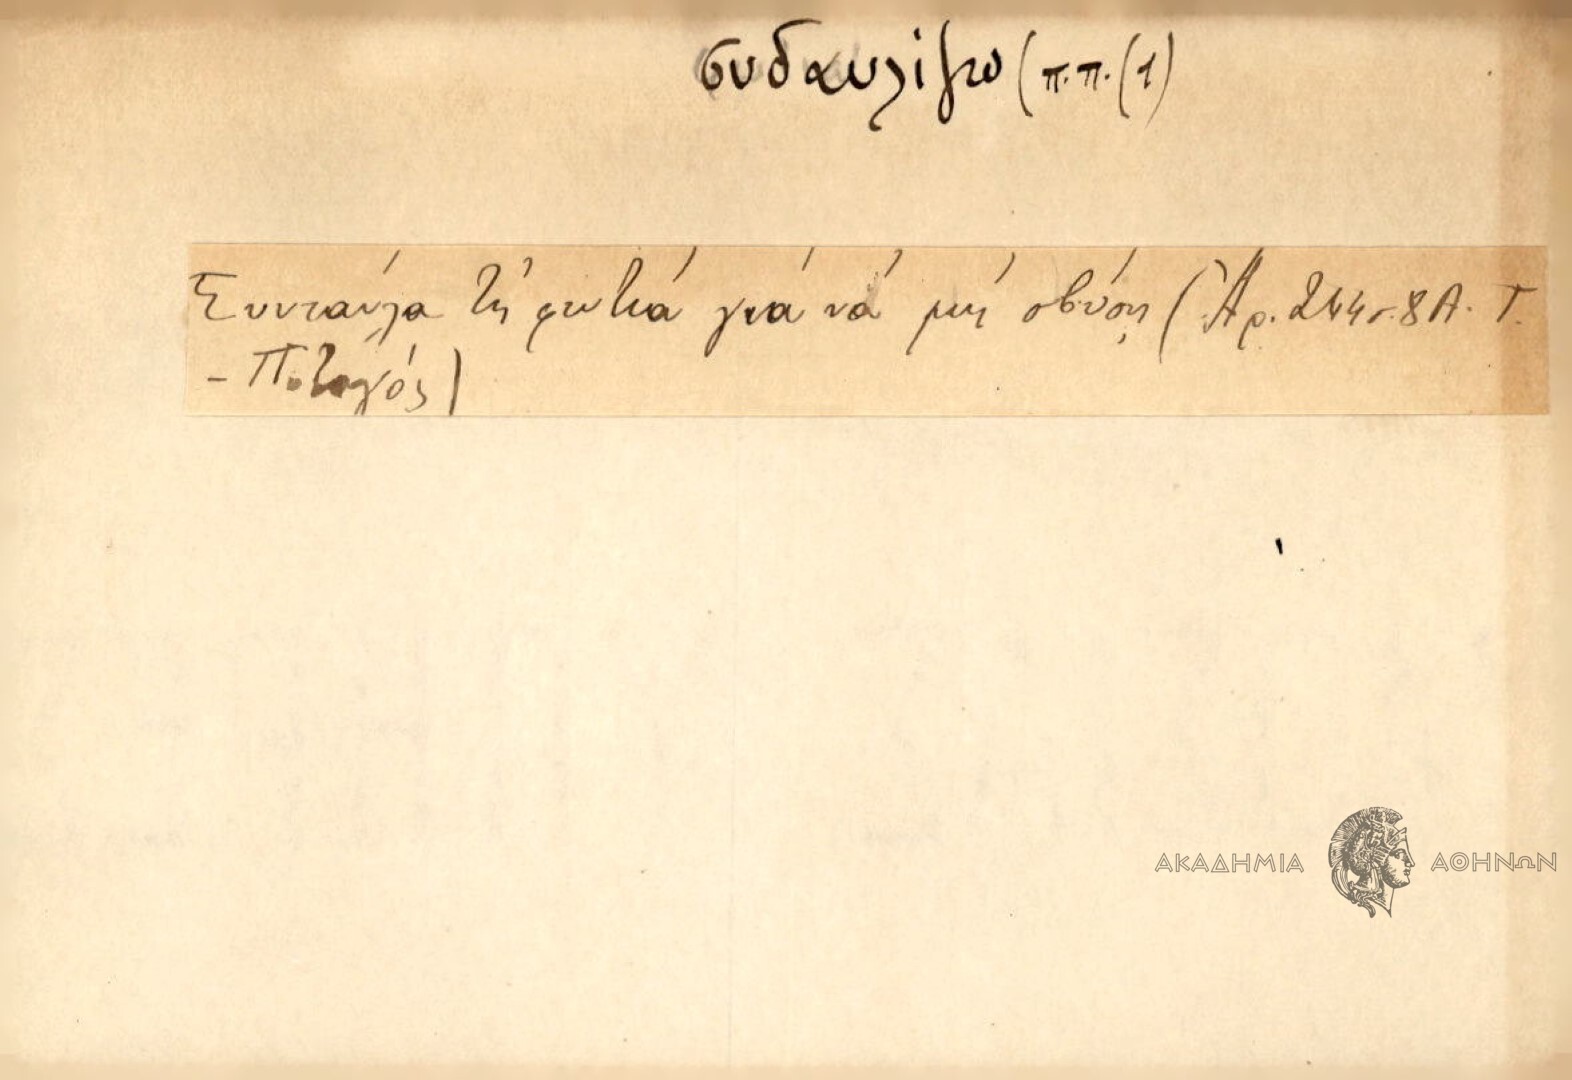 συδαυλίζω (π.π. (1)
Συνταύλα τὴ φωτιά γιά νά μή σβύσῃ (Ἀρ. 244 σ. 8 Α. Τ.
- Ποταμός)
ΑΚΑΔΗΜΙΑ ΑΘΗΝΩΝ